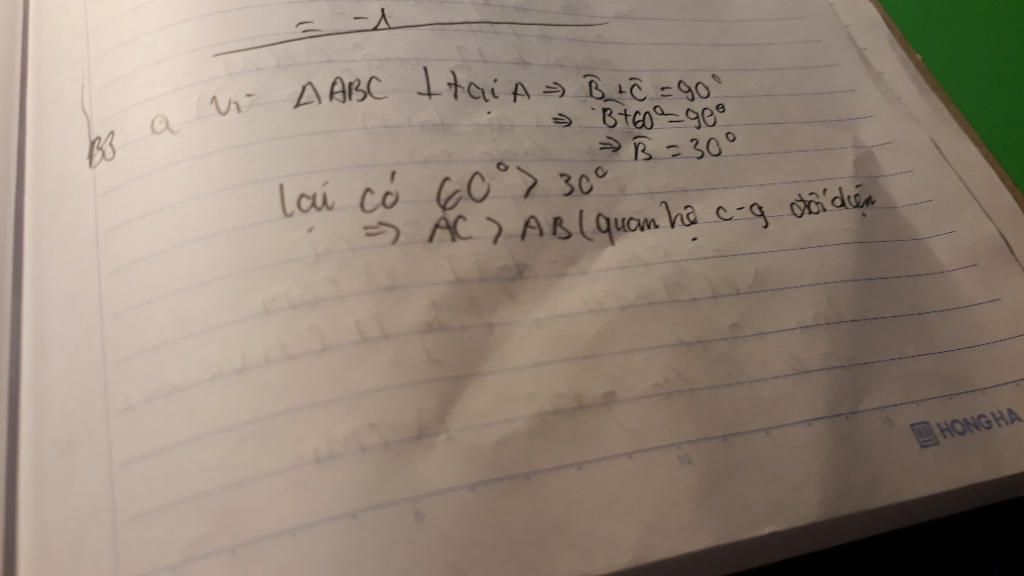 = -1
B3 a Vì ΔABC ⊥ tại A ⇒ B̂ + Ĉ = 90°
⇒ B̂ + 60° = 90°
⇒ B̂ = 30°
lại có 60° > 30°
⇒ AC > AB (quan hệ c-g đối diện
HONG HA